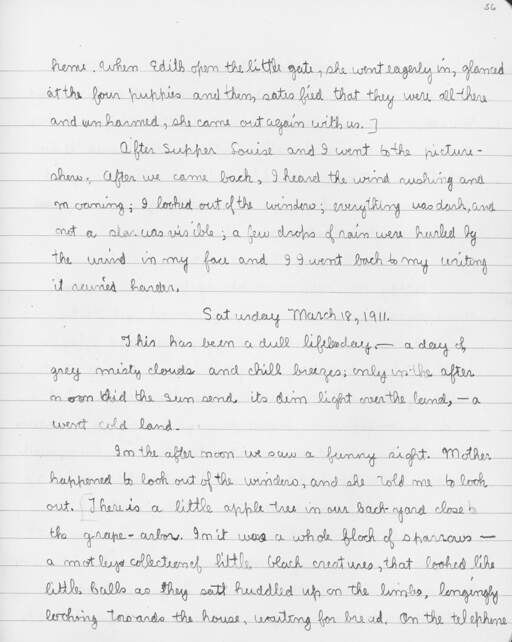 56
home. When Edith open the little gate, she went eagerly in, glanced
at the four puppies and then, satisfied that they were all there
and unharmed, she came out again with us.]
After supper Louise and I went to the picture-
show. After we came back, I heard the wind rushing and
moaning; I looked out of the window; everything was dark, and
not a star was visible; a few drops of rain were hurled by
the wind in my face and I I went back to my writing
it rained harder.
Saturday March 18, 1911.
This has been a dull lifeless day, — a day of
grey misty clouds and chill breezes; only in the after
noon did the sun send its dim light over the land, — a
wet cold land.
In the after noon we saw a funny sight. Mother
happened to look out of the window, and she told me to look
out. [There is a little apple-tree in our back-yard close to
the grape-arbor. In it was a whole flock of sparrows —
a motley collection of little black creatures, that looked like
little balls as they sat huddled up on the limbs, longingly
looking towards the house, waiting for bread. On the telephone